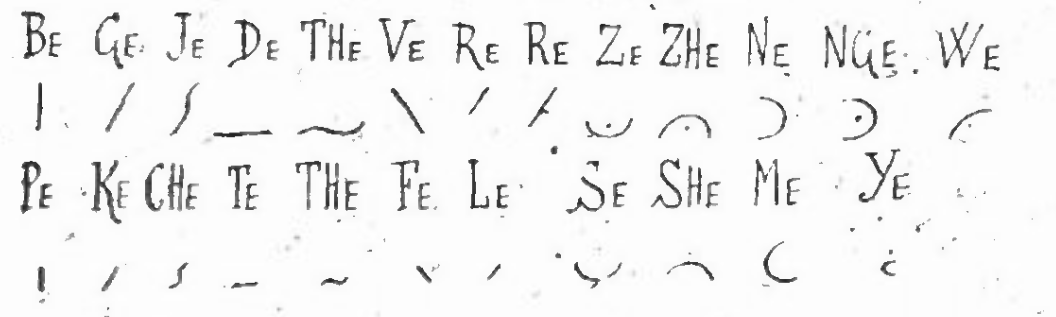 BE GE JE DE THE VE RE RE ZE ZHE NE NGE WE
PE KE CHE TE THE FE LE SE SHE ME YE